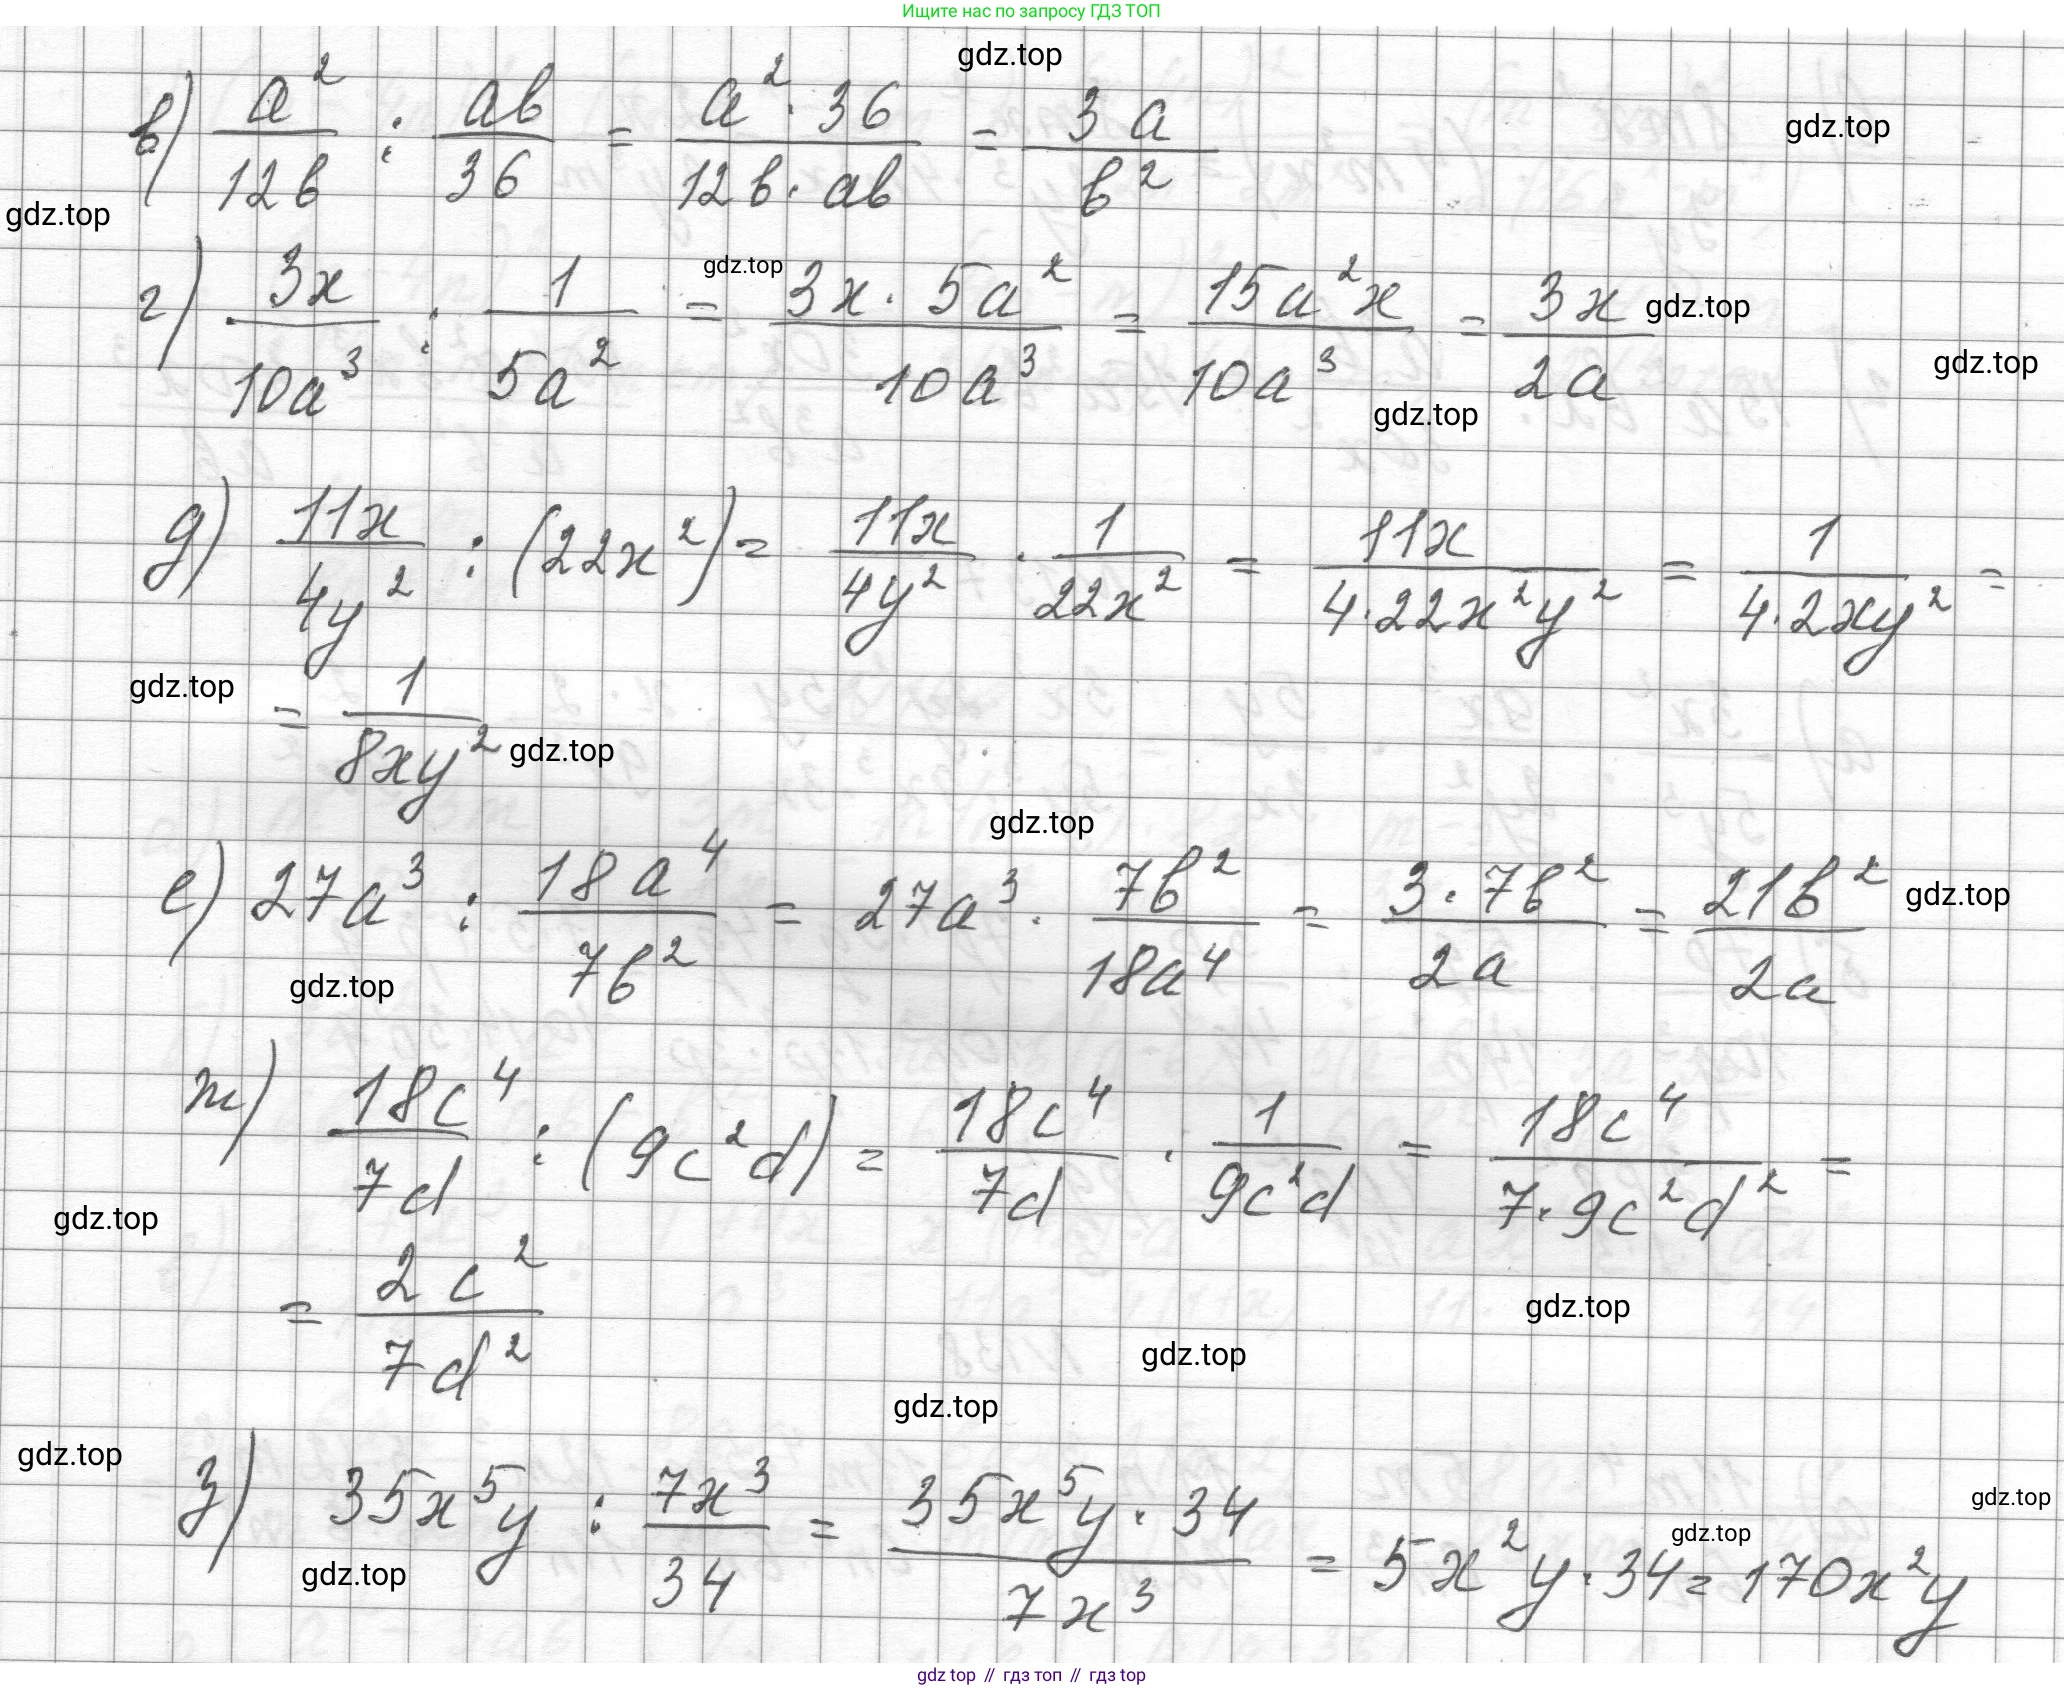 Ищите нас по запросу ГДЗ ТОП
gdz.top
в) a²/12b : ab/36 = a² · 36/12b · ab = 3a/b²
gdz.top
gdz.top
г) 3x/10a³ : 1/5a² = 3x · 5a²/10a³ = 15a²x/10a³ = 3x/2a
gdz.top
gdz.top
gdz.top
gdz.top
д) 11x/4y² : (22x²) = 11x/4y² · 1/22x² = 11x/4·22x²y² = 1/4·2xy² =
gdz.top
= 1/8xy²
gdz.top
gdz.top
е) 27a³ : 18a⁴/7b² = 27a³ · 7b²/18a⁴ = 3·7b²/2a = 21b²/2a
gdz.top
gdz.top
ж) 18c⁴/7d : (9c²d) = 18c⁴/7d · 1/9c²d = 18c⁴/7·9c²d² =
gdz.top
= 2c²/7d²
gdz.top
gdz.top
gdz.top
gdz.top
з) 35x⁵y : 7x³/34 = 35x⁵y · 34/7x³ = 5x²y · 34 = 170x²y
gdz.top
gdz.top
gdz.top
gdz top // гдз топ // гдз top